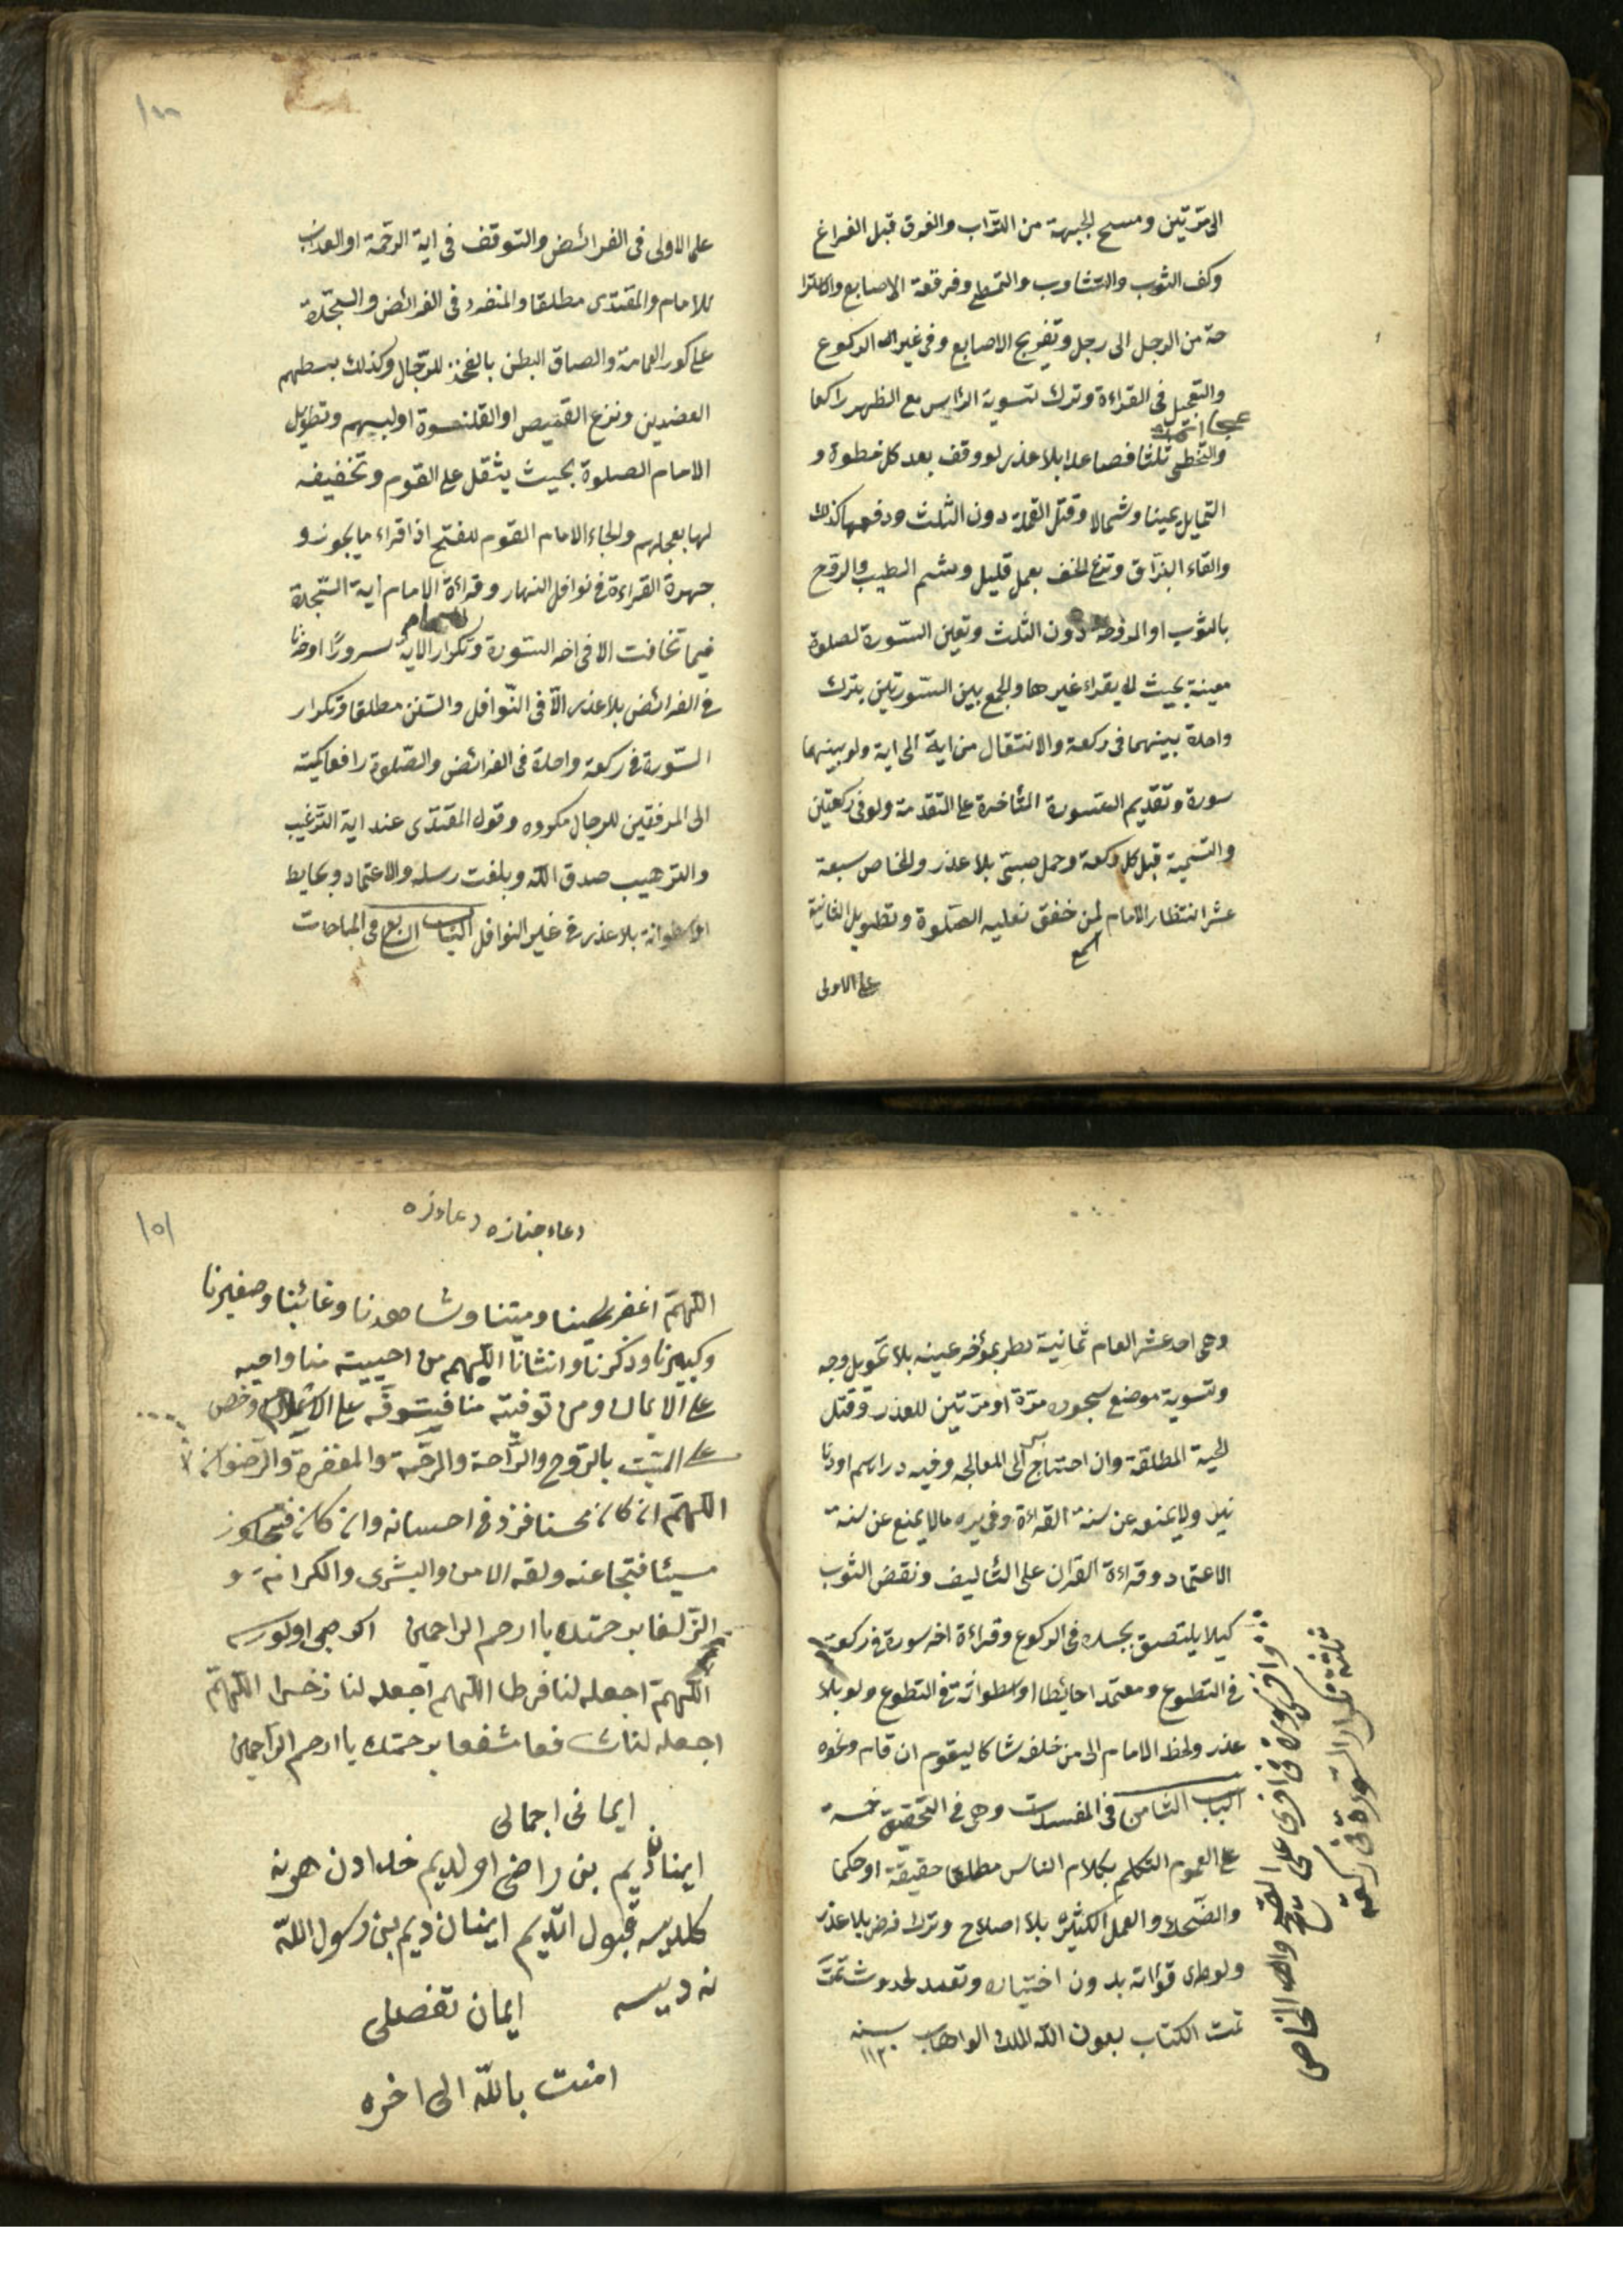 الى مرّتين ومسح الجبهة من التّراب والفرق قبل الفراغ
وكف الثوب والتثاوب والتمطى وفرقعة الاصابع والاسترا
حة من الرجل الى رجل وتفريج الاصابع وفى غير الركوع
والتعجيل فى القراءة وترك تسوية الرّأس مع الظهر راكعا
والتخطى ثلثا فصاعدا بلا عذر لو وقف بعد كل خطوة و
التمايل يمينا وشمالا وقتل القملة دون الثلث ودفعها كذلك
والقاء البزاق ونزع الخف بعمل قليل وشم الطيب والروح
بالثوب او المروحة دون الثلث وتعين السّورة لصلوة
معينة بحيث لا يقراء غيرها والجمع بين السّورتين بترك
واحدة بينهما فى ركعة والانتقال من اية الى اية ولو بينهما
سورة وتقديم السورة المتأخرة على المتقدمة ولو فى ركعتين
والتسمية قبل كل ركعة وحمل صبىّ بلا عذر والخاص سبعة
عشر انتظار الامام لمن خفق نعليه الصّلوة وتطويل الثانية
على الاولى
١٠٠
على الاولى فى الفرائض والتوقف فى اية الرحمة او العذاب
للامام والمقتدى مطلقا والمنفرد فى الفرائض والسجدة
على كور العمامة والصاق البطن بالفخذ للرّجال وكذلك بسطهم
العضدين ونزع القميص او القلنسوة او لبسهم وتطويل
الامام الصلوة بحيث يثقل على القوم وتخفيفه
لها بعجلهم والجاء الامام القوم للفتح اذا قراء ما يجوز و
جهرة القراءة فى نوافل النهار وقراءة الامام اية السّجدة
فيما تخافت الا فى اخر السّورة وتكرار الاية سرورًا او حزنا
فى الفرائض بلا عذر الّا فى النّوافل والسّنن مطلقا وتكرار
السّورة فى ركعة واحدة فى الفرائض والصّلوة رافعا كميّه
الى المرفقين للرجال مكروه وقول المقتدى عند اية الترغيب
والترهيب صدق الله وبلغت رسله والاعتماد وبحايط
او اسطوانة بلا عذر فى غير النوافل الباب الرابع فى المباحات
وهى احد عشر العام ثمانية نظر بمؤخر عينه بلا تحويل وجه
وتسوية موضع سجوده مرّة او مرّتين للعذر وقتل
الحية المطلقة وان احتاج الى المعالجه وفيه دراهم او دنا
نير ولا يمنعه عن سنة القراءة وفى يده ما لا يمنع عن سنة
الاعتماد وقراءة القران على التأليف ونفض الثوب
كيلا يلتصق بجسده فى الركوع وقراءة اخر سورة فى ركعة
فى التطوع ومعتمدا حائيطا او اسطوانة فى التطوع ولو بلا
عذر ولحظ الامام الى من خلفه شاكا ليقوم ان قام ونحوه
الباب الثامن فى المفسدات وهى فى التحقيق خمسة
على العموم التكلم بكلام الناس مطلقا حقيقة او حكما
والضحك والعمل الكثيره بلا اصلاح وترك فرض بلا عذر
ولو طرى قراته بدون اختياره وتعمد لحدوث تمّت
تمت الكتاب بعون الله الملك الواهاب سنه ١١٣٠
ثلثة تكرار السّورة فى ركعة
١٥١
دعاء جنازه دعاء زه
اللهمّ اغفر لحينا وميتنا وشاهدنا وغائبنا وصغيرنا
وكبيرنا وذكرنا وانثانا اللهم من احييته منا واحيه
على الايمان ومن توفيته منا فتوفّه على وخص
على الميّت بالرّوح والرّاحة والرحّمة والمغفرة والرّضوان
اللهمّ ان كان محسنا فزد فى احسانه وان كان فتجاوز
مسيئا فتجا عنه ولقه الامن والبشرى والكرامة و
الزّلفا برحمتك يا ارحم الراحمين اكر صبى اولورسه
اللهمّ اجعله لنا فرطا اللهم اجعله لنا ذخرا اللهمّ
اجعله لنا شافعا مشفعا برحمتك يا ارحم الرّاحمين
ايمانى اجمالى
ايمنان ديم بن راضى اولديم خدادن هر نه
كلديسه قبول اتديم ايمنان ديم بن رسول الله
نه ديسه ايمان تفصلى
امنت بالله الى اخره